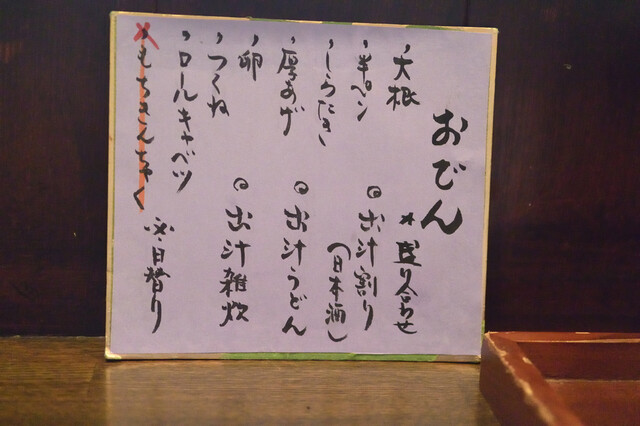 おでん
*盛り合わせ
、大根
、半ペン
、しらたき
、厚あげ
、卵
、つくね
、ロールキャベツ
、もちきんちゃく
◎出汁割り
(日本酒)
◎出汁うどん
◎出汁雑炊
日替り